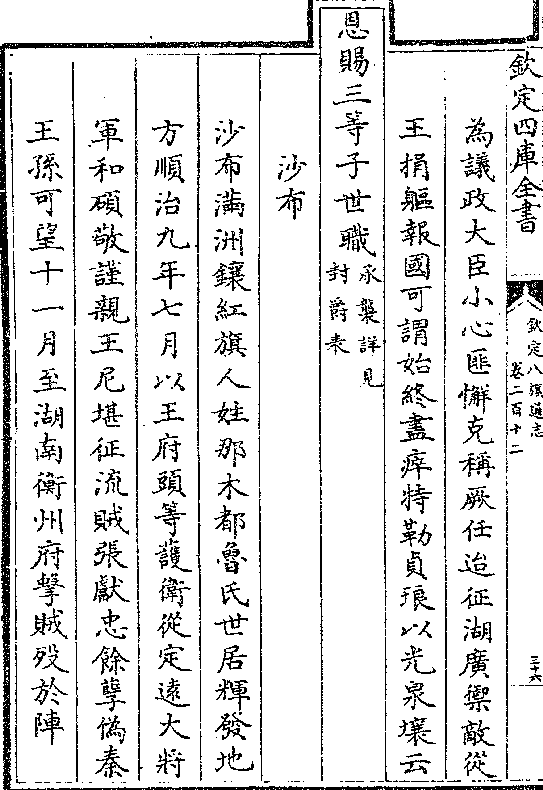 欽定四庫全書
欽定八旗通志
卷二百十二
三十六
為議政大臣小心匪懈克稱厥任迨征湖廣禦敵從
王捐軀報國可謂始終盡瘁特勒貞珉以光泉壤云
恩賜三等子世職承襲詳見
封爵表
沙布
沙布滿洲鑲紅旗人姓那木都魯氏世居輝發地
方順治九年七月以王府頭等護衛從定遠大將
軍和碩敬謹親王尼堪征流賊張獻忠餘孽偽秦
王孫可望十一月至湖南衡州府擊賊歿於陣